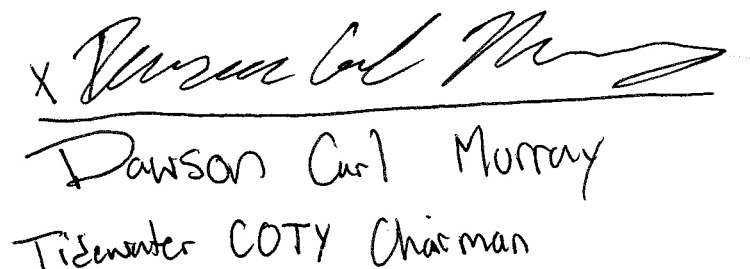 x Dawson Carl Murray
Dawson Carl Murray
Tidewater COTY Chairman